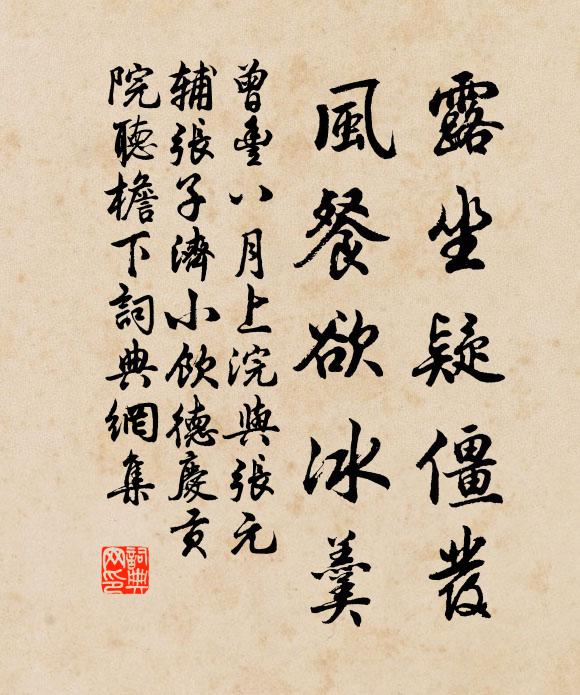 露坐疑僵髮
風餐欲冰羹
曾豐八月上浣與張元
輔張子濟小飲德慶貢
院聽檐下詞典網集
詞典网印